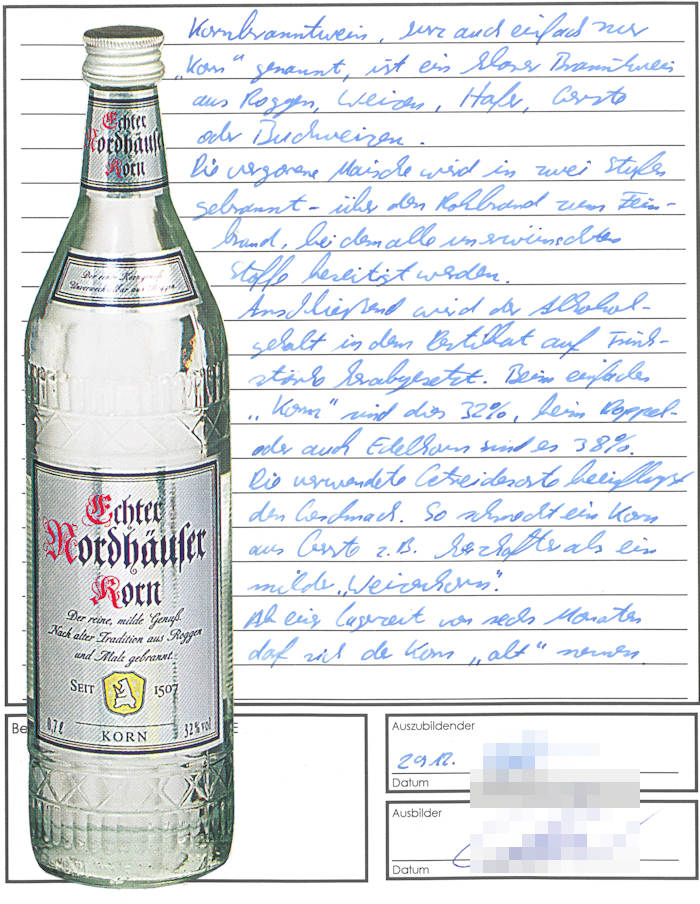 Kornbranntwein, kurz auch einfach nur
„Korn" genannt, ist ein klarer Branntwein
aus Roggen, Weizen, Hafer, Gerste
oder Buchweizen.
Die vergorene Maische wird in zwei Stufen
gebrannt - über den Rohbrand zum Fein-
brand, bei dem alle unerwünschten
Stoffe beseitigt werden.
Anschließend wird der Alkohol-
gehalt in dem Destillat auf Trink-
stärke herabgesetzt. Beim einfachen
„Korn" sind dies 32%, beim Doppel-
oder auch Edelkorn sind es 38%.
Die verwendete Getreidesorte beeinflusst
den Geschmack. So schmeckt ein Korn
aus Gerste z.B. herzhafter als ein
milder „Weizenkorn".
Ab einer Lagerzeit von sechs Monaten
darf sich der Korn „alt" nennen.
Echter
Nordhäuser
Korn
Der reine Korngenuß.
Unverwechselbar aus Roggen.
Echter
Nordhäuser
Korn
Der reine, milde Genuß.
Nach alter Tradition aus Roggen
und Malz gebrannt.
SEIT 1507
0,7 l 32% vol
KORN
Be E
Auszubildender
29.12.
Datum
Ausbilder
Datum